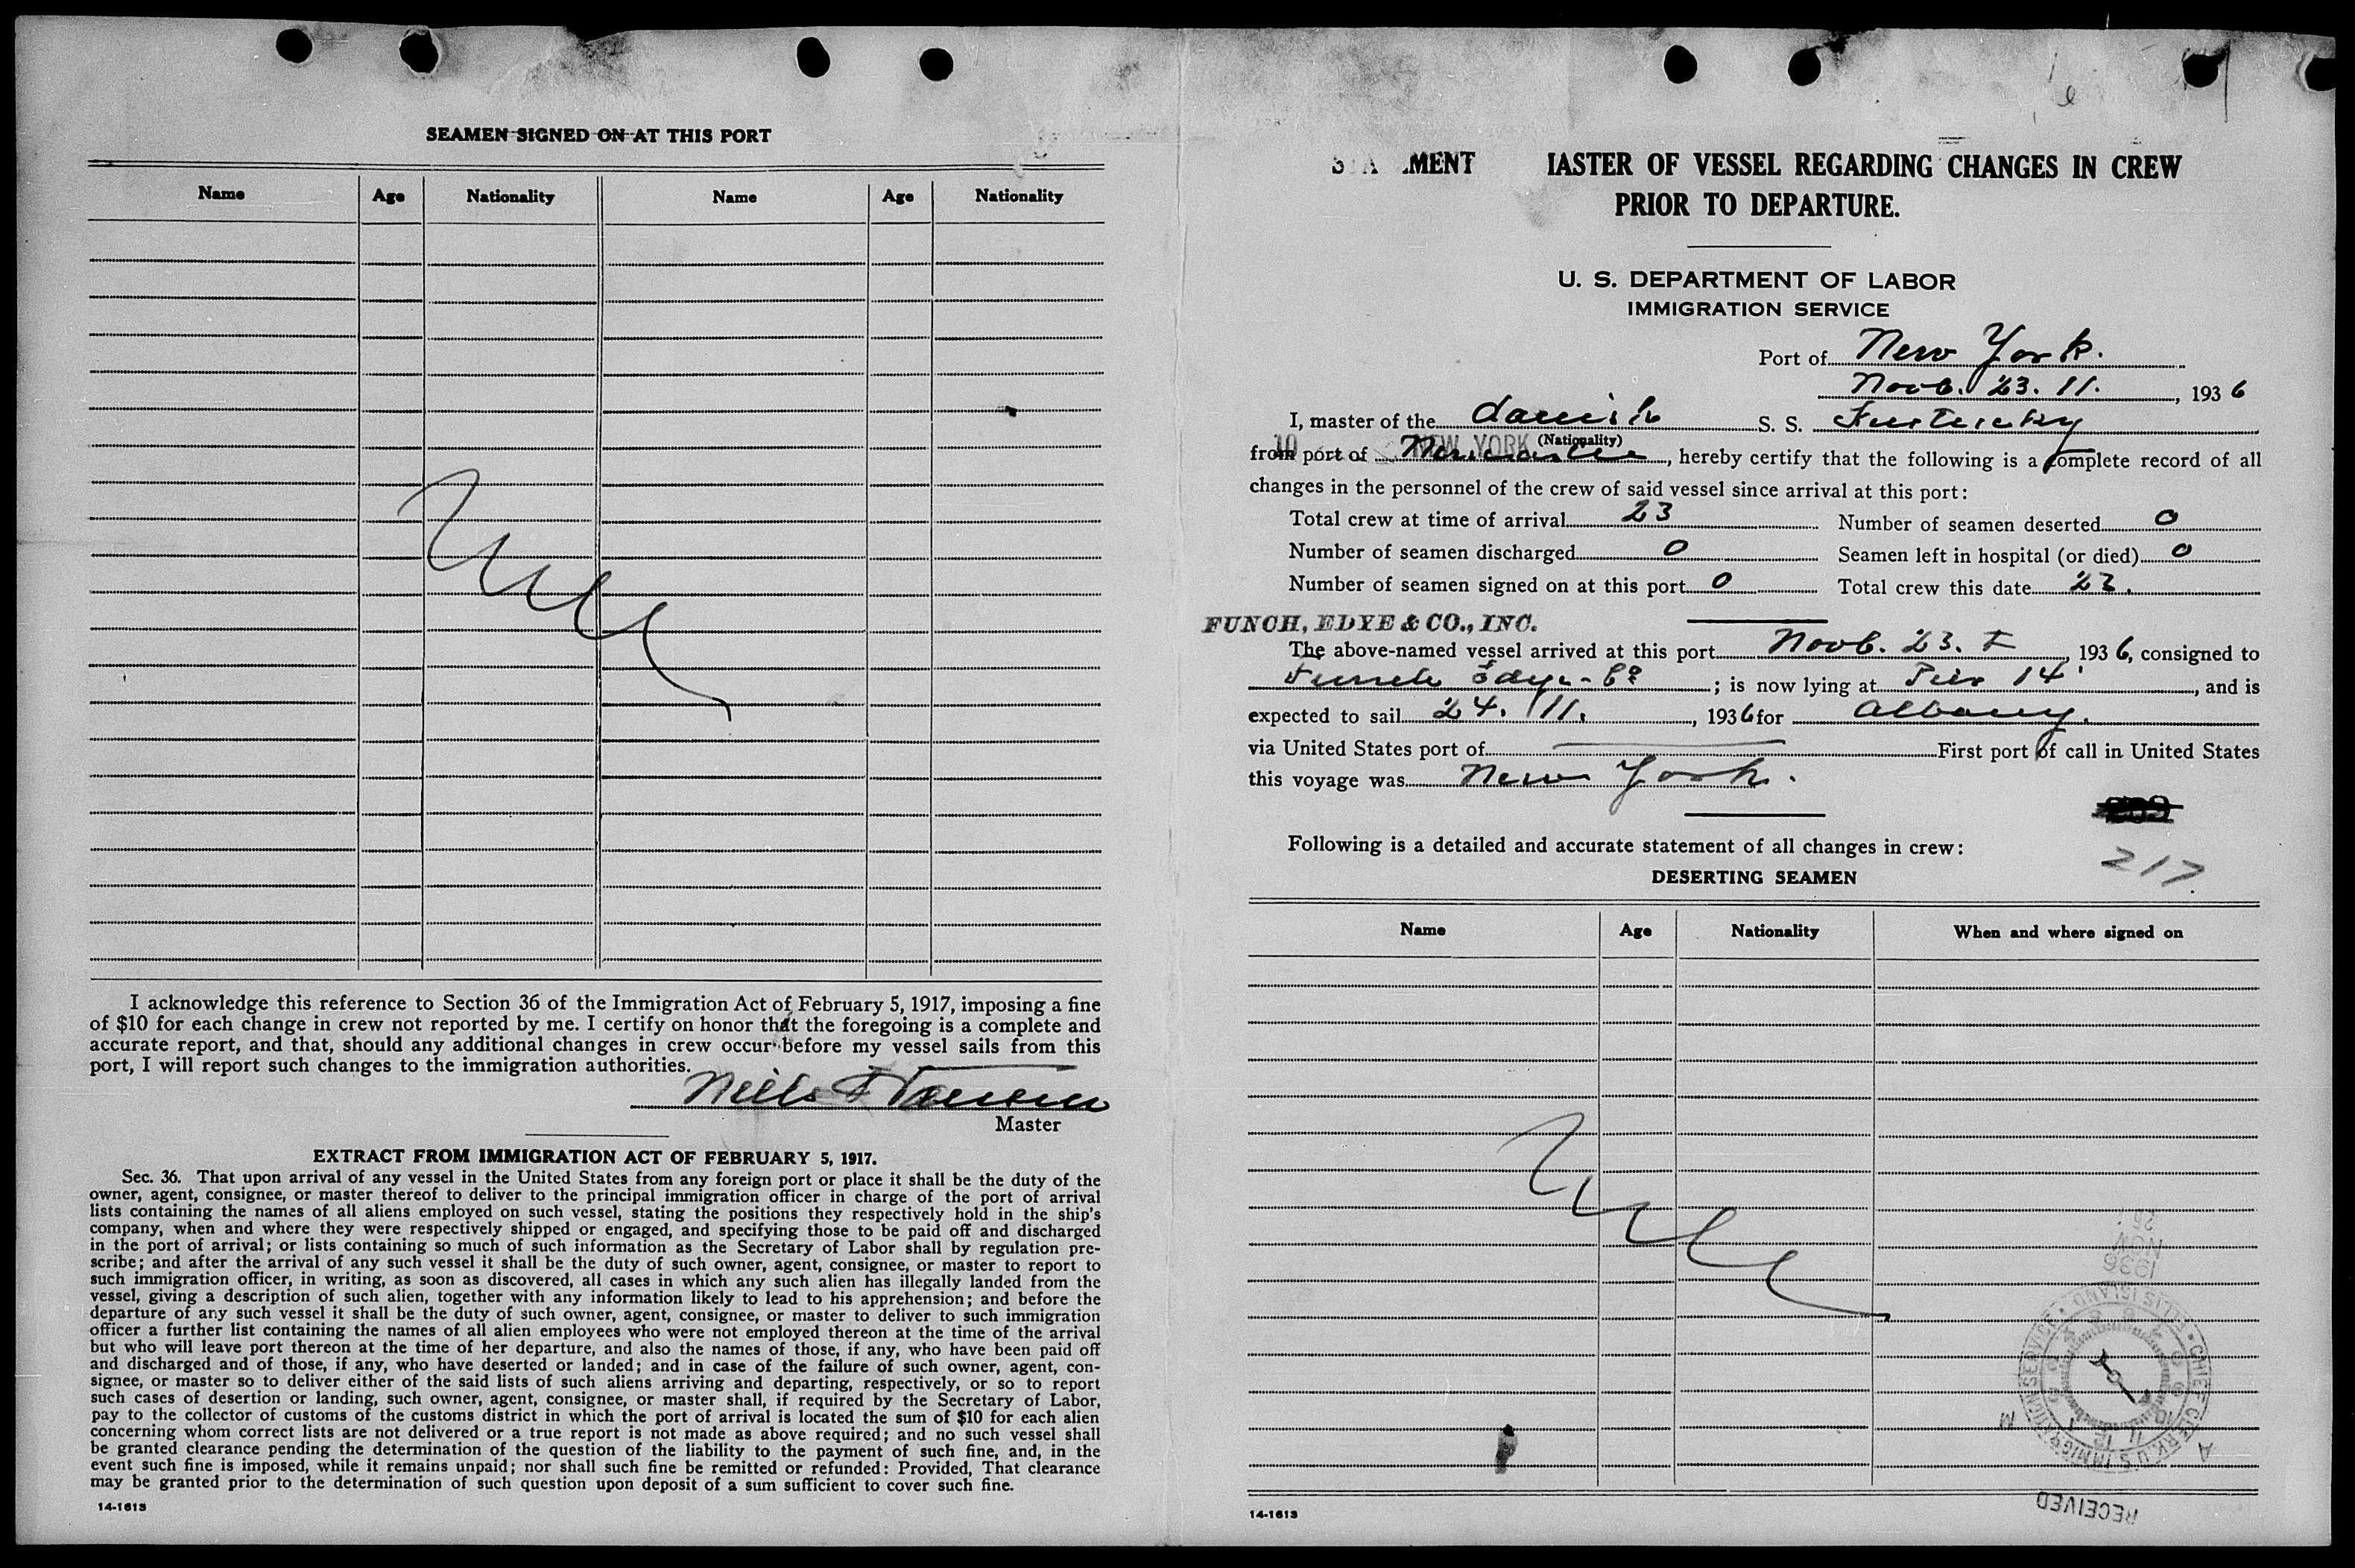 SEAMEN SIGNED ON AT THIS PORT
Name Age Nationality Name Age Nationality
I acknowledge this reference to Section 36 of the Immigration Act of February 5, 1917, imposing a fine
of $10 for each change in crew not reported by me. I certify on honor that the foregoing is a complete and
accurate report, and that, should any additional changes in crew occur before my vessel sails from this
port, I will report such changes to the immigration authorities.
Niels
Master
EXTRACT FROM IMMIGRATION ACT OF FEBRUARY 5, 1917.
Sec. 36. That upon arrival of any vessel in the United States from any foreign port or place it shall be the duty of the
owner, agent, consignee, or master thereof to deliver to the principal immigration officer in charge of the port of arrival
lists containing the names of all aliens employed on such vessel, stating the positions they respectively hold in the ship's
company, when and where they were respectively shipped or engaged, and specifying those to be paid off and discharged
in the port of arrival; or lists containing so much of such information as the Secretary of Labor shall by regulation pre-
scribe; and after the arrival of any such vessel it shall be the duty of such owner, agent, consignee, or master to report to
such immigration officer, in writing, as soon as discovered, all cases in which any such alien has illegally landed from the
vessel, giving a description of such alien, together with any information likely to lead to his apprehension; and before the
departure of any such vessel it shall be the duty of such owner, agent, consignee, or master to deliver to such immigration
officer a further list containing the names of all alien employees who were not employed thereon at the time of the arrival
but who will leave port thereon at the time of her departure, and also the names of those, if any, who have been paid off
and discharged and of those, if any, who have deserted or landed; and in case of the failure of such owner, agent, con-
signee, or master so to deliver either of the said lists of such aliens arriving and departing, respectively, or so to report
such cases of desertion or landing, such owner, agent, consignee, or master shall, if required by the Secretary of Labor,
pay to the collector of customs of the customs district in which the port of arrival is located the sum of $10 for each alien
concerning whom correct lists are not delivered or a true report is not made as above required; and no such vessel shall
be granted clearance pending the determination of the question of the liability to the payment of such fine, and, in the
event such fine is imposed, while it remains unpaid; nor shall such fine be remitted or refunded: Provided, That clearance
may be granted prior to the determination of such question upon deposit of a sum sufficient to cover such fine.
14-1613
MENT IASTER OF VESSEL REGARDING CHANGES IN CREW
PRIOR TO DEPARTURE.
U. S. DEPARTMENT OF LABOR
IMMIGRATION SERVICE
Port of New York.
Novb. 23. 11. , 1936
I, master of the danish S. S.
(Nationality)
from port of NEW YORK , hereby certify that the following is a complete record of all
changes in the personnel of the crew of said vessel since arrival at this port:
Total crew at time of arrival 23 Number of seamen deserted 0
Number of seamen discharged 0 Seamen left in hospital (or died) 0
Number of seamen signed on at this port 0 Total crew this date 23.
FUNCH, EDYE & CO., INC.
The above-named vessel arrived at this port Novb. 23. , 1936, consigned to
Funch Edye - Co ; is now lying at Pier 14 , and is
expected to sail 24. 11. , 1936 for Albany.
via United States port of First port of call in United States
this voyage was New York.
217
Following is a detailed and accurate statement of all changes in crew:
DESERTING SEAMEN
Name Age Nationality When and where signed on
1936
NOV
25
CHIEF CLERK U.S. IMMIGRATION SERVICE • ELLIS ISLAND •
RECEIVED
14-1613